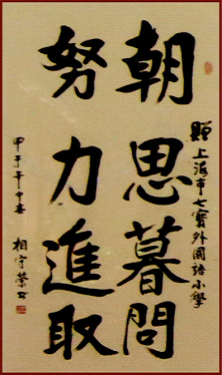 贈上海市七寶外國語小學
朝思暮問
努力進取
甲子年中春
相守榮書